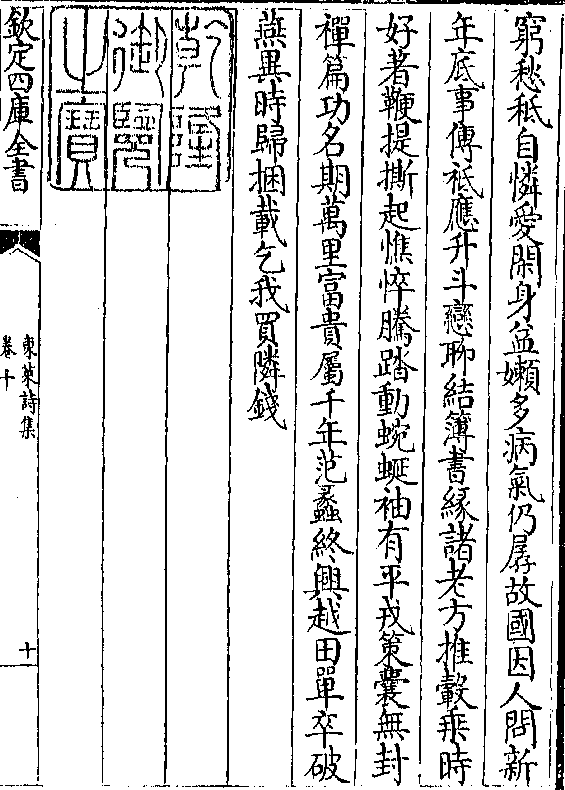 窮愁秪自憐愛閒身益嬾多病氣仍孱故國因人問新
年底事傳秪應升斗戀聊結簿書緣諸老方推轂乗時
好著鞭提撕起憔悴騰踏動蜿蜒袖有平戎策囊無封
禪篇功名期萬里富貴屬千年范蠡終興越田單卒破
燕異時歸捆載乞我買隣錢
乾隆
御覽
之寶
欽定四庫全書
東萊詩集
卷十
十